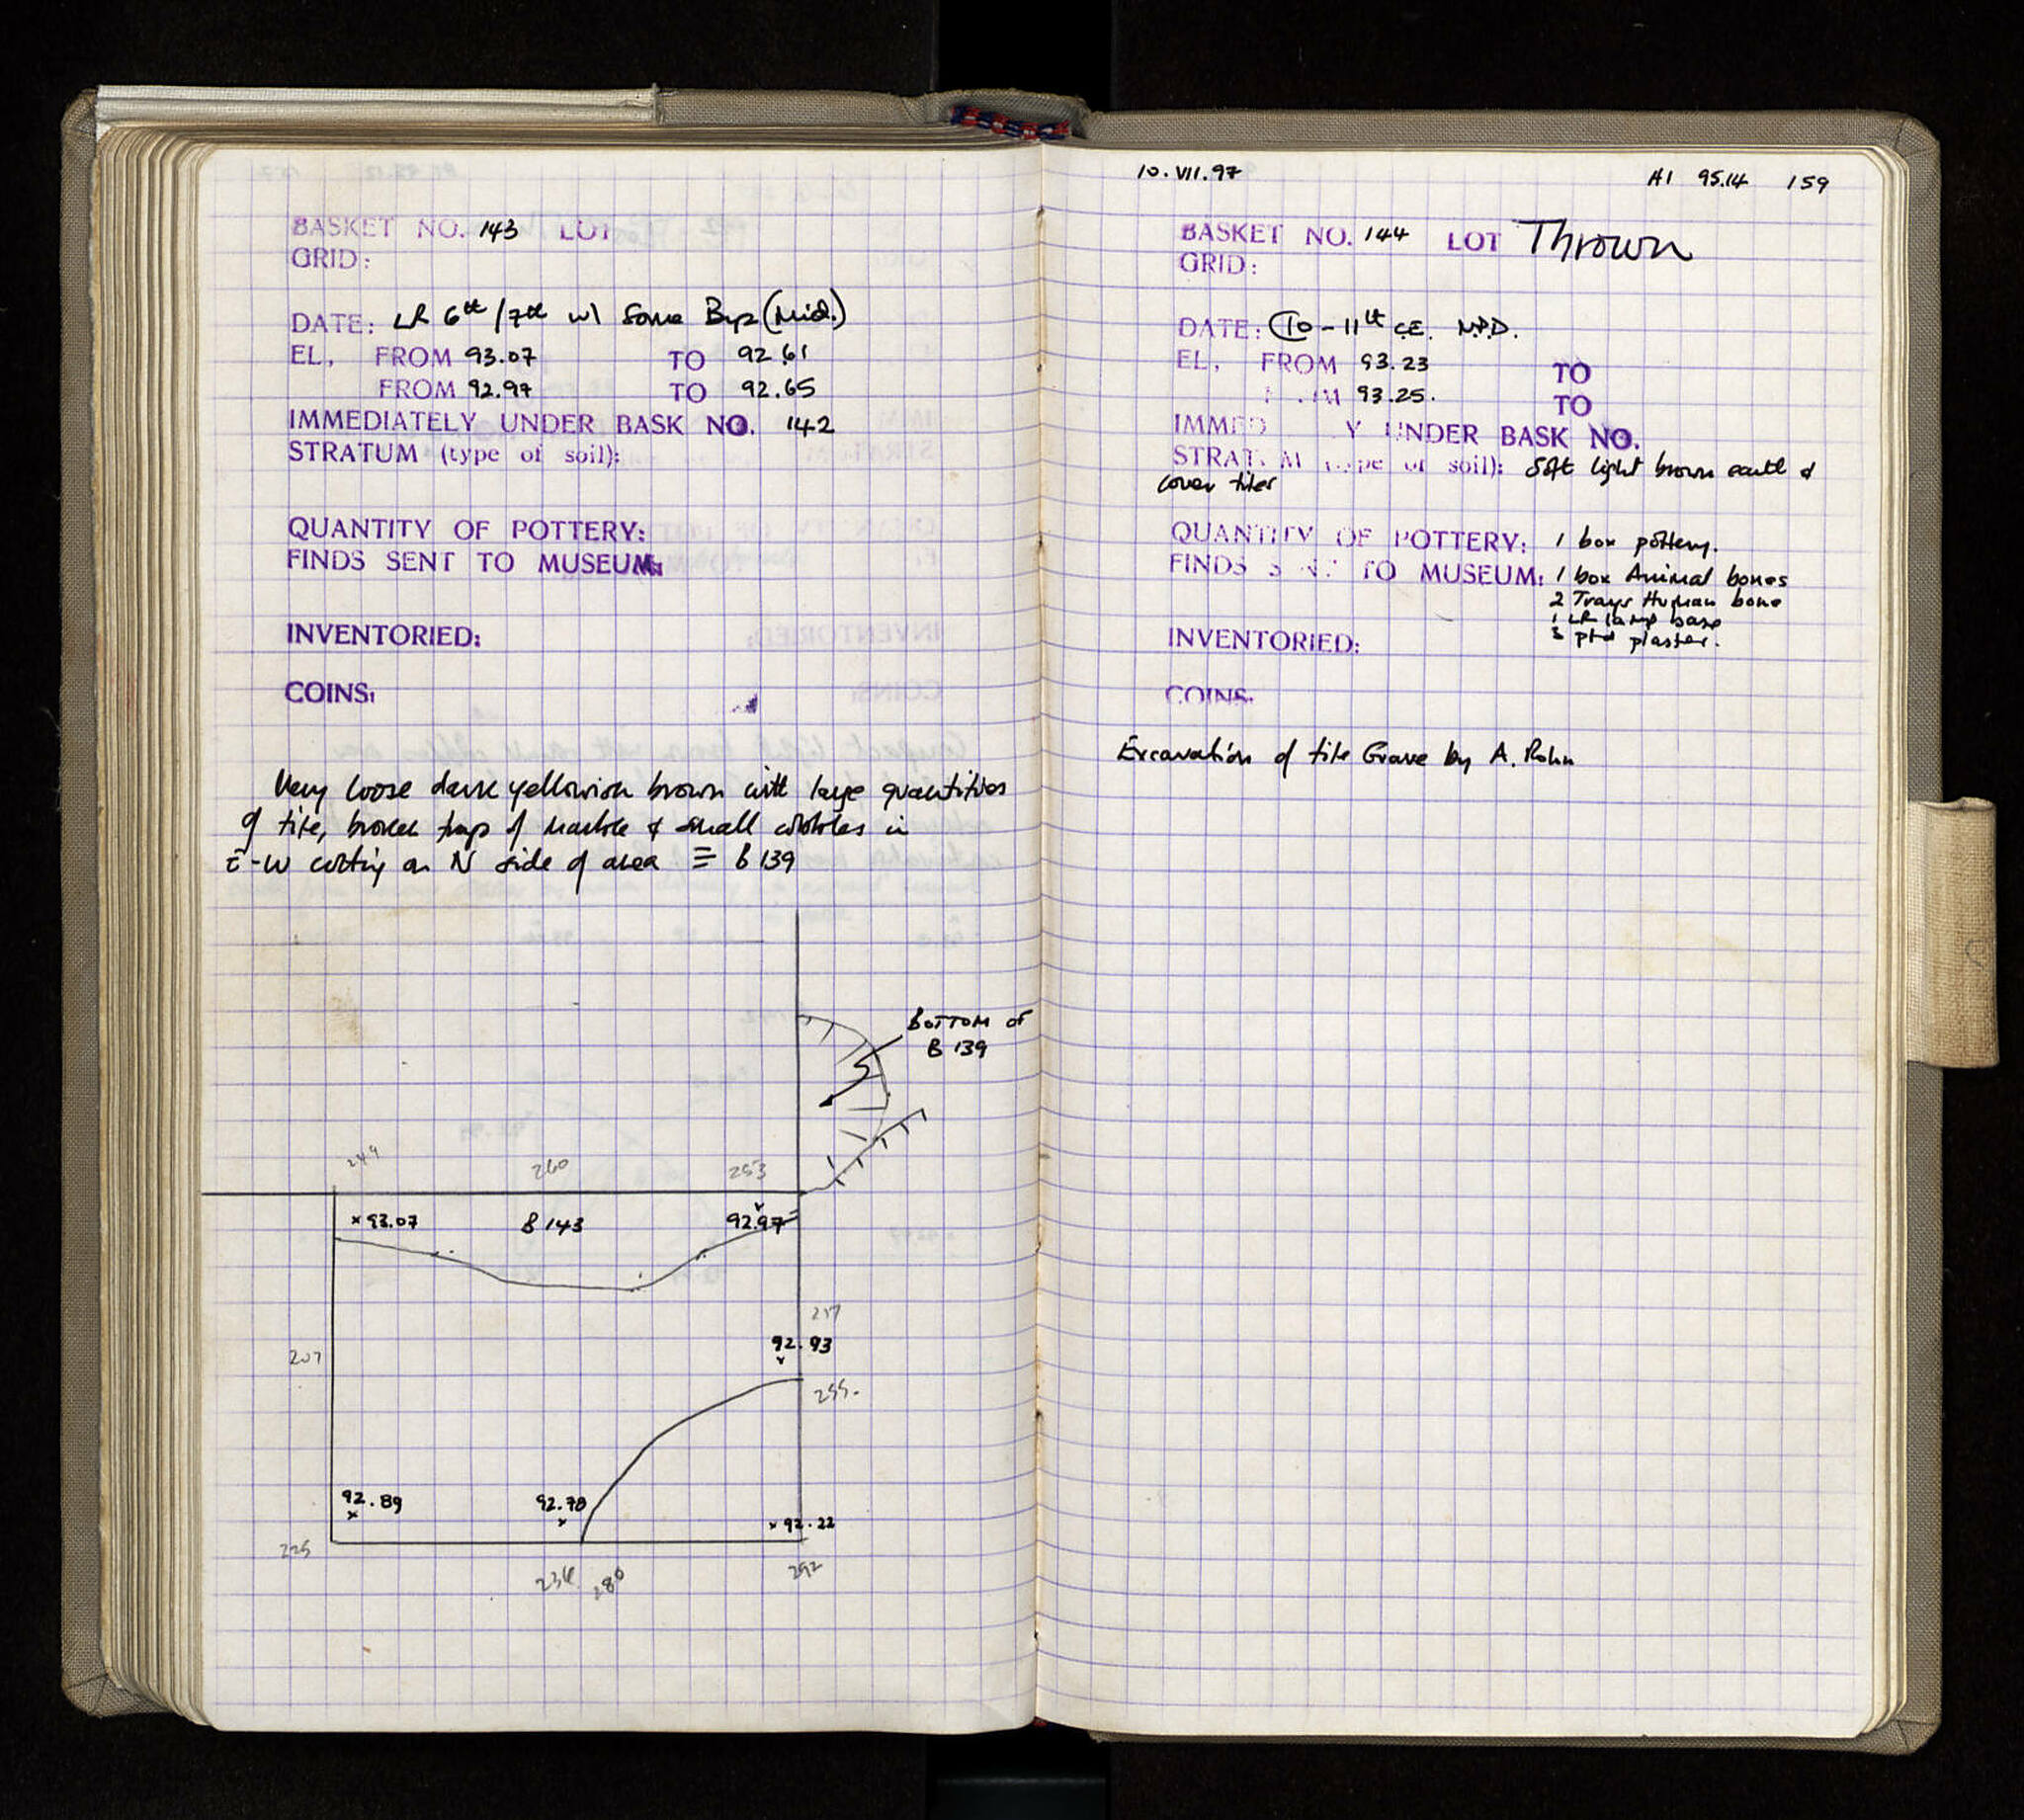 BASKET NO. 143 LOT
GRID:
DATE: LR 6th/7th w/ Some Byz (Mid.)
EL, FROM 93.07 TO 92.61
FROM 92.97 TO 92.65
IMMEDIATELY UNDER BASK NO. 142
STRATUM (type of soil):
QUANTITY OF POTTERY:
FINDS SENT TO MUSEUM:
INVENTORIED:
COINS:
Very loose dark yellowish brown with large quantities
of tile, broken frags of marble & small cobbles in
E-W cutting on N side of area ≡ B 139
BOTTOM OF
B 139
249 260 253
x 93.07 B 143 92.97
217
92.93
207
255.
92.89 92.78 x 92.22
225
234 280 292
10.VII.97 A1 95.14 159
BASKET NO. 144 LOT Thrown
GRID:
DATE: C10-11th CE. N.P.D.
EL, FROM 93.23 TO
93.25. TO
IMMED Y UNDER BASK NO.
STRAT M type of soil): Soft light brown earth &
cover tiles
QUANTITY OF POTTERY: 1 box pottery.
FINDS SENT TO MUSEUM: 1 box Animal bones
2 Trays Human bone
1 LR lamp base
3 ptd plaster.
INVENTORIED:
COINS.
Excavation of tile Grave by A. Rohn